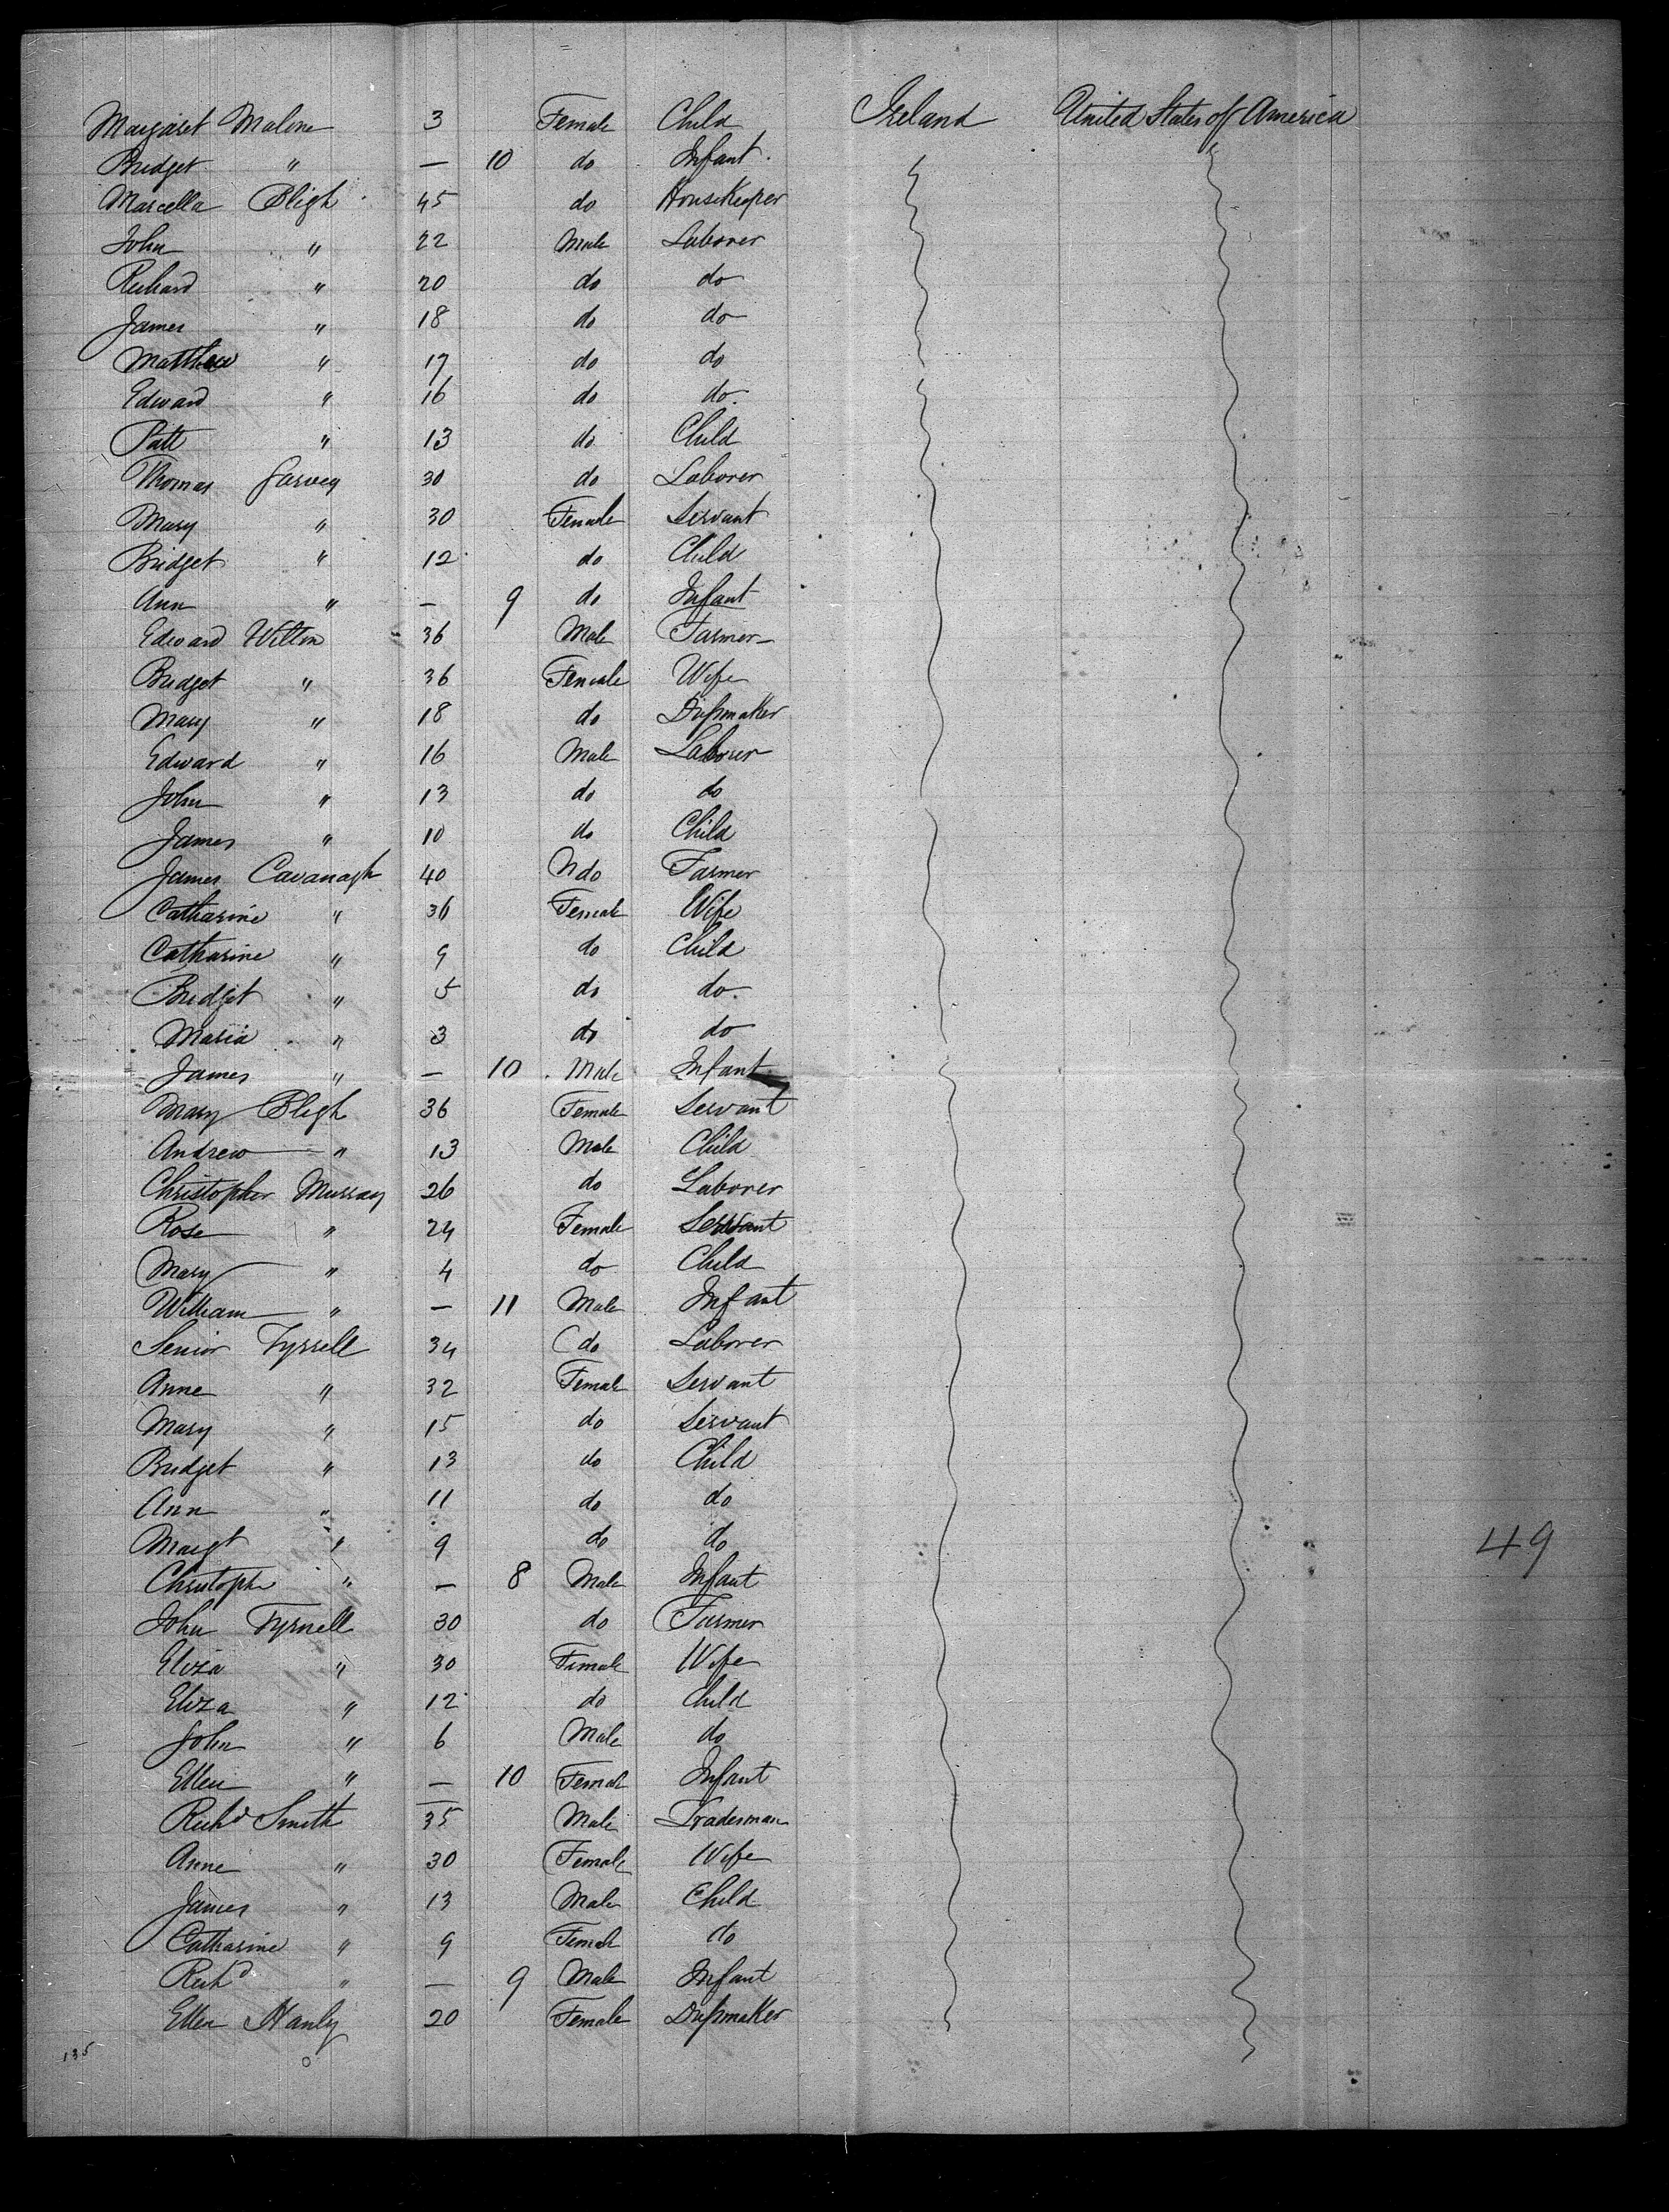 Margaret Malone 3 Female Child Ireland United States of America
Bridget " — 10 do Infant
Marcella Bligh 45 do Housekeeper
John " 22 Male Laborer
Richard " 20 do do
James " 18 do do
Matthew " 17 do do
Edward " 16 do do
Patt " 13 do Child
Thomas Garvey 30 do Laborer
Mary " 30 Female Servant
Bridget " 12 do Child
Ann " — 9 do Infant
Edward Wilton 36 Male Farmer
Bridget " 36 Female Wife
Mary " 18 do Dressmaker
Edward " 16 Male Laborer
John " 13 do do
James " 10 do Child
James Cavanagh 40 do Farmer
Catharine " 36 Female Wife
Catharine " 9 do Child
Bridget " 5 do do
Maria " 3 do do
James " — 10 Male Infant
Mary Bligh 36 Female Servant
Andrew " 13 Male Child
Christopher Murray 26 do Laborer
Rose " 24 Female Servant
Mary " 4 do Child
William " — 11 Male Infant
Senior Tyrrell 34 do Laborer
Anne " 32 Female Servant
Mary " 15 do Servant
Bridget " 13 do Child
Ann " 11 do do
Margt " 9 do do
49
Christophr " — 8 Male Infant
John Tyrrell 30 do Farmer
Eliza " 30 Female Wife
Eliza " 12 do Child
John " 6 Male do
Ellen " — 10 Female Infant
Richd Smith 35 Male Tradesman
Anne " 30 Female Wife
James " 13 Male Child
Catharine " 9 Female do
Richd " — 9 Male Infant
Ellen Hanly 20 Female Dressmaker
135